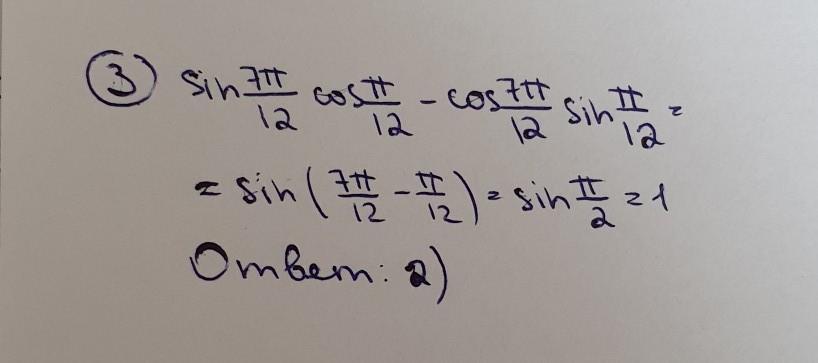 ③ sin 7π/12 cos π/12 - cos 7π/12 sin π/12 =
= sin (7π/12 - π/12) = sin π/2 = 1
Ответ: 2)